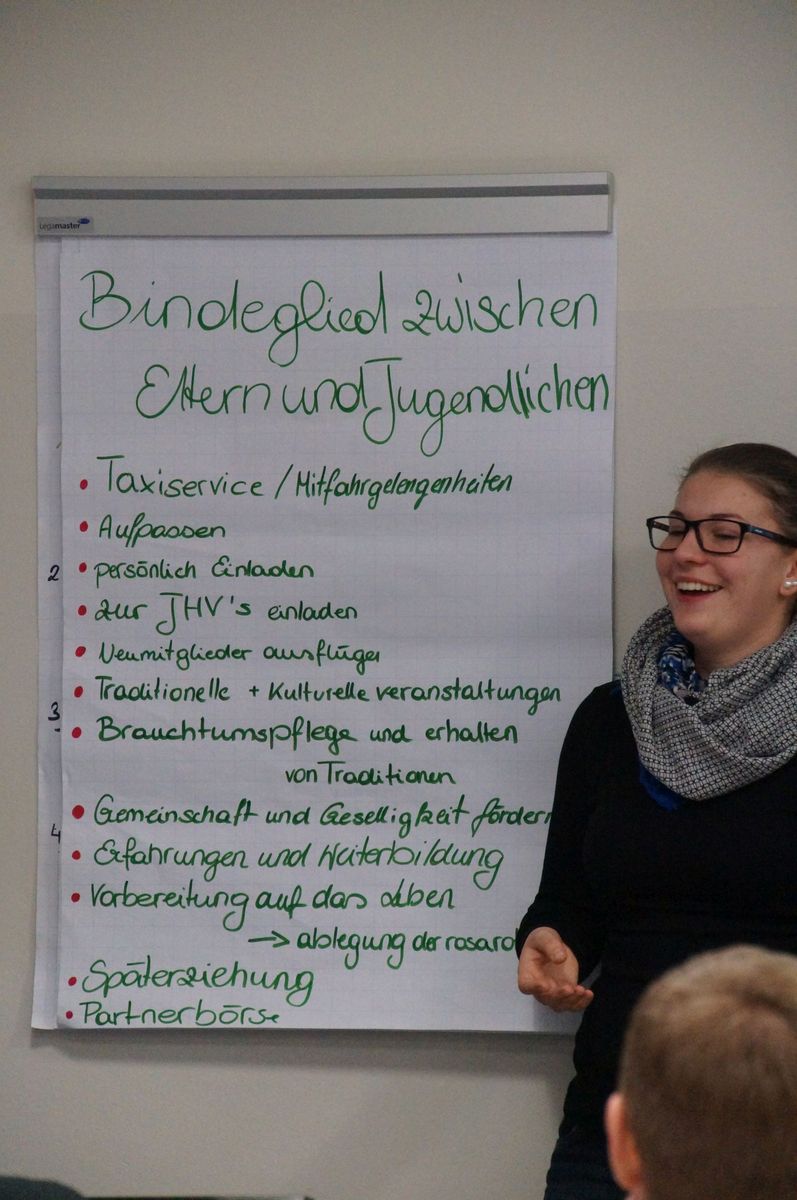 Legamaster
Bindeglied zwischen
Eltern und Jugendlichen
• Taxiservice / Mitfahrgelengenheiten
• Aufpassen
2
• persönlich Einladen
• zur JHV's einladen
• Neumitglieder ausflüge
• Traditionelle + Kulturelle veranstaltungen
3
• Brauchtumspflege und erhalten
von Traditionen
• Gemeinschaft und Geselligkeit fördern
4
• Erfahrungen und Weiterbildung
• Vorbereitung auf das Leben
→ ablegung der
• Späterziehung
• Partnerbörse